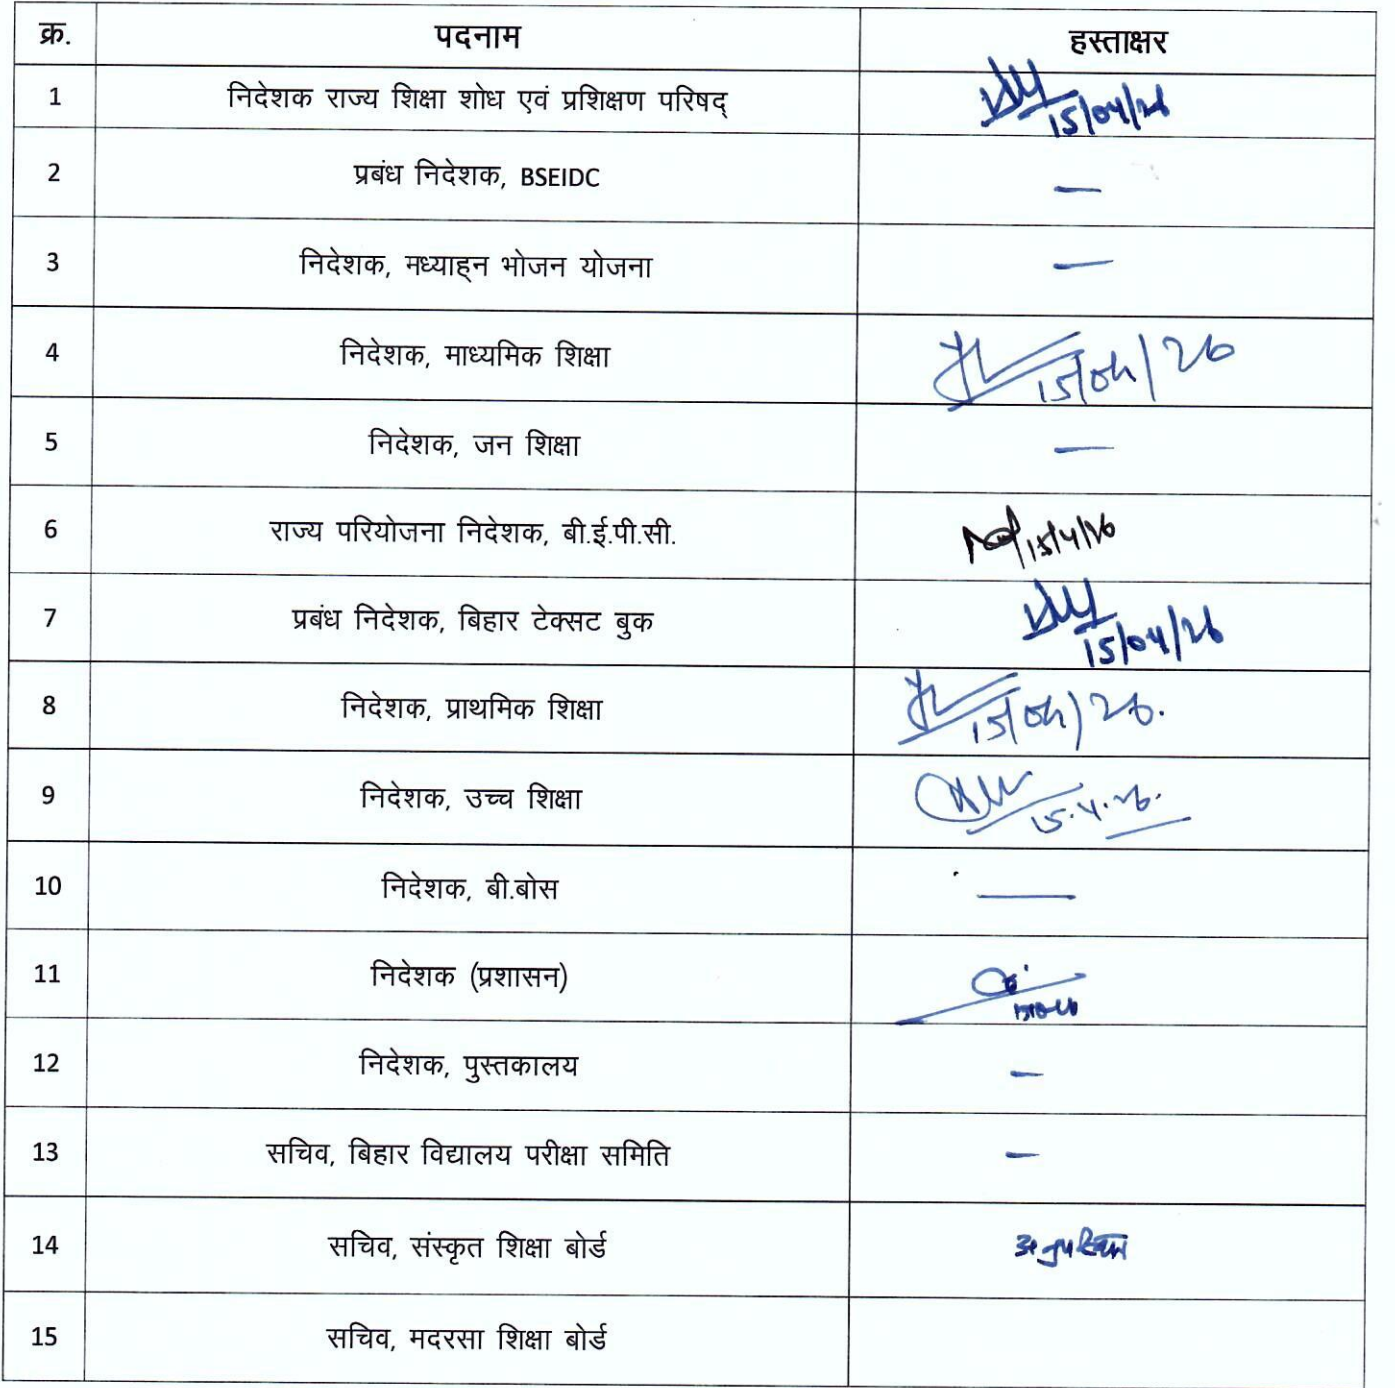 क्र. पदनाम हस्ताक्षर
1 निदेशक राज्य शिक्षा शोध एवं प्रशिक्षण परिषद् 15/04/26
2 प्रबंध निदेशक, BSEIDC —
3 निदेशक, मध्याह्न भोजन योजना —
4 निदेशक, माध्यमिक शिक्षा 15/04/26
5 निदेशक, जन शिक्षा —
6 राज्य परियोजना निदेशक, बी.ई.पी.सी. 15/4/26
7 प्रबंध निदेशक, बिहार टेक्सट बुक 15/04/26
8 निदेशक, प्राथमिक शिक्षा 15/04/26.
9 निदेशक, उच्च शिक्षा 15.4.26.
10 निदेशक, बी.बोस —
11 निदेशक (प्रशासन)
12 निदेशक, पुस्तकालय —
13 सचिव, बिहार विद्यालय परीक्षा समिति —
14 सचिव, संस्कृत शिक्षा बोर्ड अनुपस्थित
15 सचिव, मदरसा शिक्षा बोर्ड